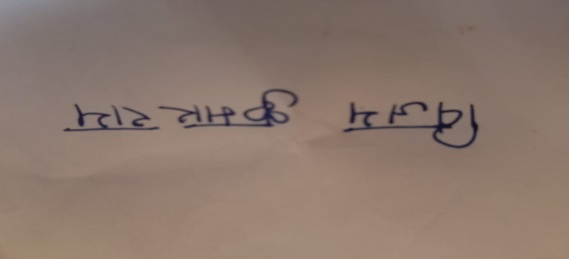 विजय कुमार राय